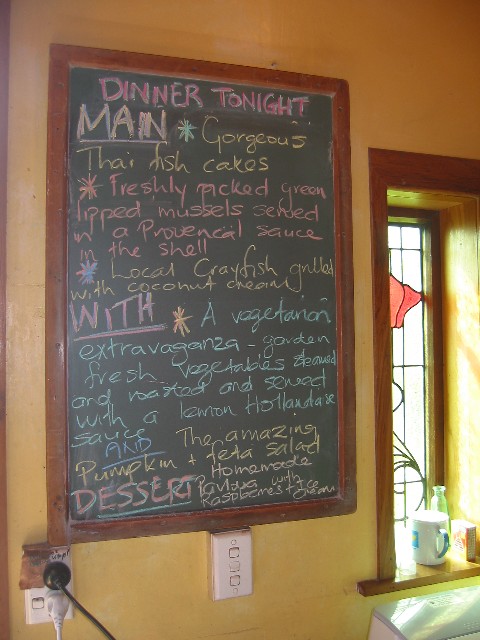 DINNER TONIGHT
MAIN * Gorgeous
Thai fish cakes
* Freshly picked green
lipped mussels served
in a Provencal sauce
in the shell
* Local Crayfish grilled
with coconut cream
WITH * A vegetarian
extravaganza - garden
fresh vegetables steamed
and roasted and served
with a lemon Hollandaise
sauce
AND The amazing
Pumpkin + feta salad
DESSERT Homemade
Pavlova with
Raspberries + Ice Cream